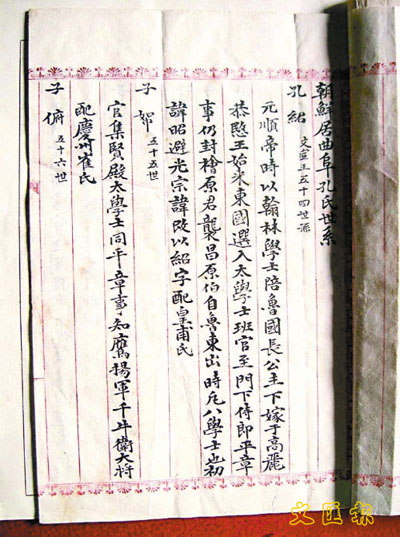 朝鮮居曲阜孔氏世系
孔紹 文宣王五十四世孫
元順帝時以翰林學士陪魯國長公主下嫁于高麗
恭愍王始來東國選入太學士班官至門下侍郎平章
事仍封檜原君襲昌原伯自魯東出時凡八學士也初
諱昭避光宗諱改以紹字配皇甫氏
子帑 五十五世
官集賢殿太學士同平章事知鷹揚軍千牛衛大將
配慶州崔氏
子俯 五十六世
文匯報